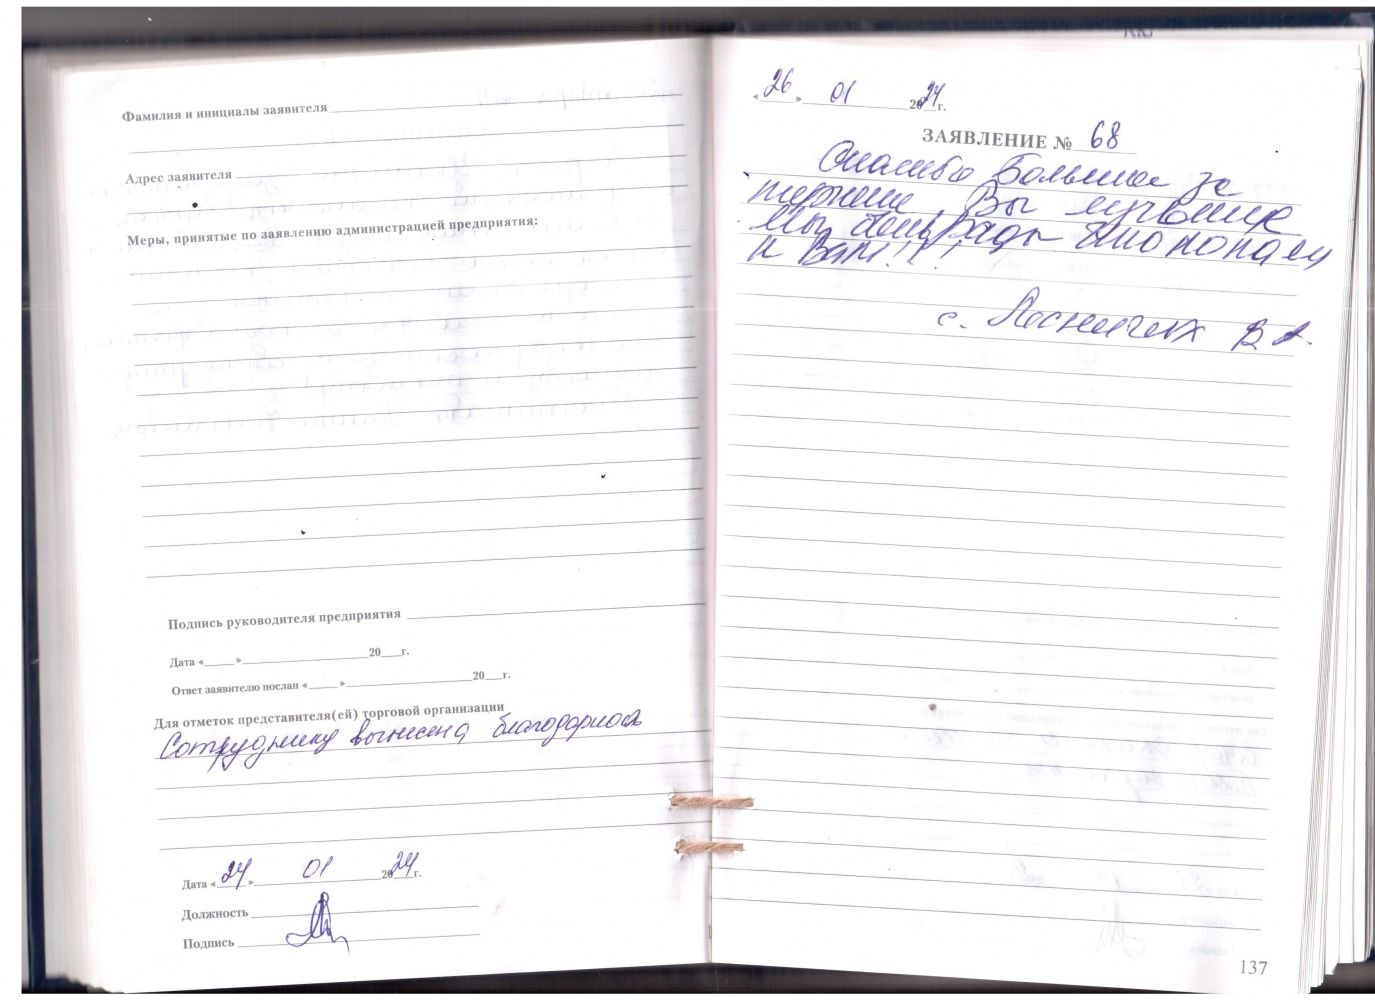 Фамилия и инициалы заявителя
Адрес заявителя
Меры, принятые по заявлению администрацией предприятия:
Подпись руководителя предприятия
Дата «___» ___ 20__г.
Ответ заявителю послан «___» ___ 20__г.
Для отметок представителя(ей) торговой организации
Сотруднику вынесена благодарность
Дата «24» 01 2024г.
Должность
Подпись
«26» 01 2024г.
ЗАЯВЛЕНИЕ № 68
Спасибо Большое за
терпение, Вы лучшие
Мы очень рады что попали
к Вам!!!
с.
В. А.
137